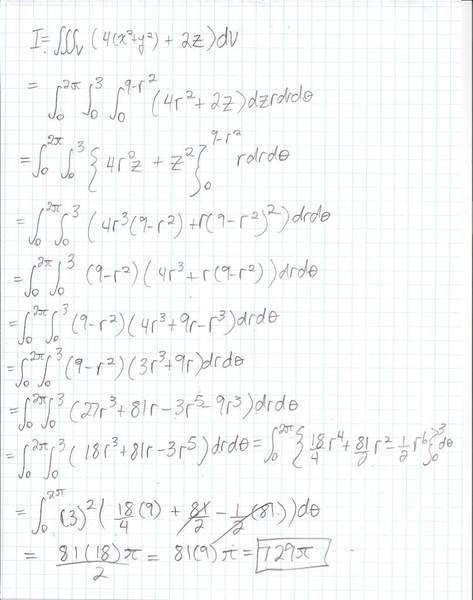 I = ∭ᵥ (4(x²+y²) + 2z) dV
= ∫₀^2π ∫₀^3 ∫₀^9-r² (4r² + 2z) dz r dr dθ
= ∫₀^2π ∫₀^3 {4r²z + z²}₀^9-r² r dr dθ
= ∫₀^2π ∫₀^3 (4r³(9-r²) + r(9-r²)²) dr dθ
= ∫₀^2π ∫₀^3 (9-r²)(4r³ + r(9-r²)) dr dθ
= ∫₀^2π ∫₀^3 (9-r²)(4r³ + 9r - r³) dr dθ
= ∫₀^2π ∫₀^3 (9-r²)(3r³ + 9r) dr dθ
= ∫₀^2π ∫₀^3 (27r³ + 81r - 3r⁵ - 9r³) dr dθ
= ∫₀^2π ∫₀^3 (18r³ + 81r - 3r⁵) dr dθ = ∫₀^2π {18/4 r⁴ + 81/2 r² - 1/2 r⁶}₀^3 dθ
= ∫₀^2π (3)² (18/4 (9) + 81/2 - 1/2 (81)) dθ
= 81(18)π/2 = 81(9)π = 729π